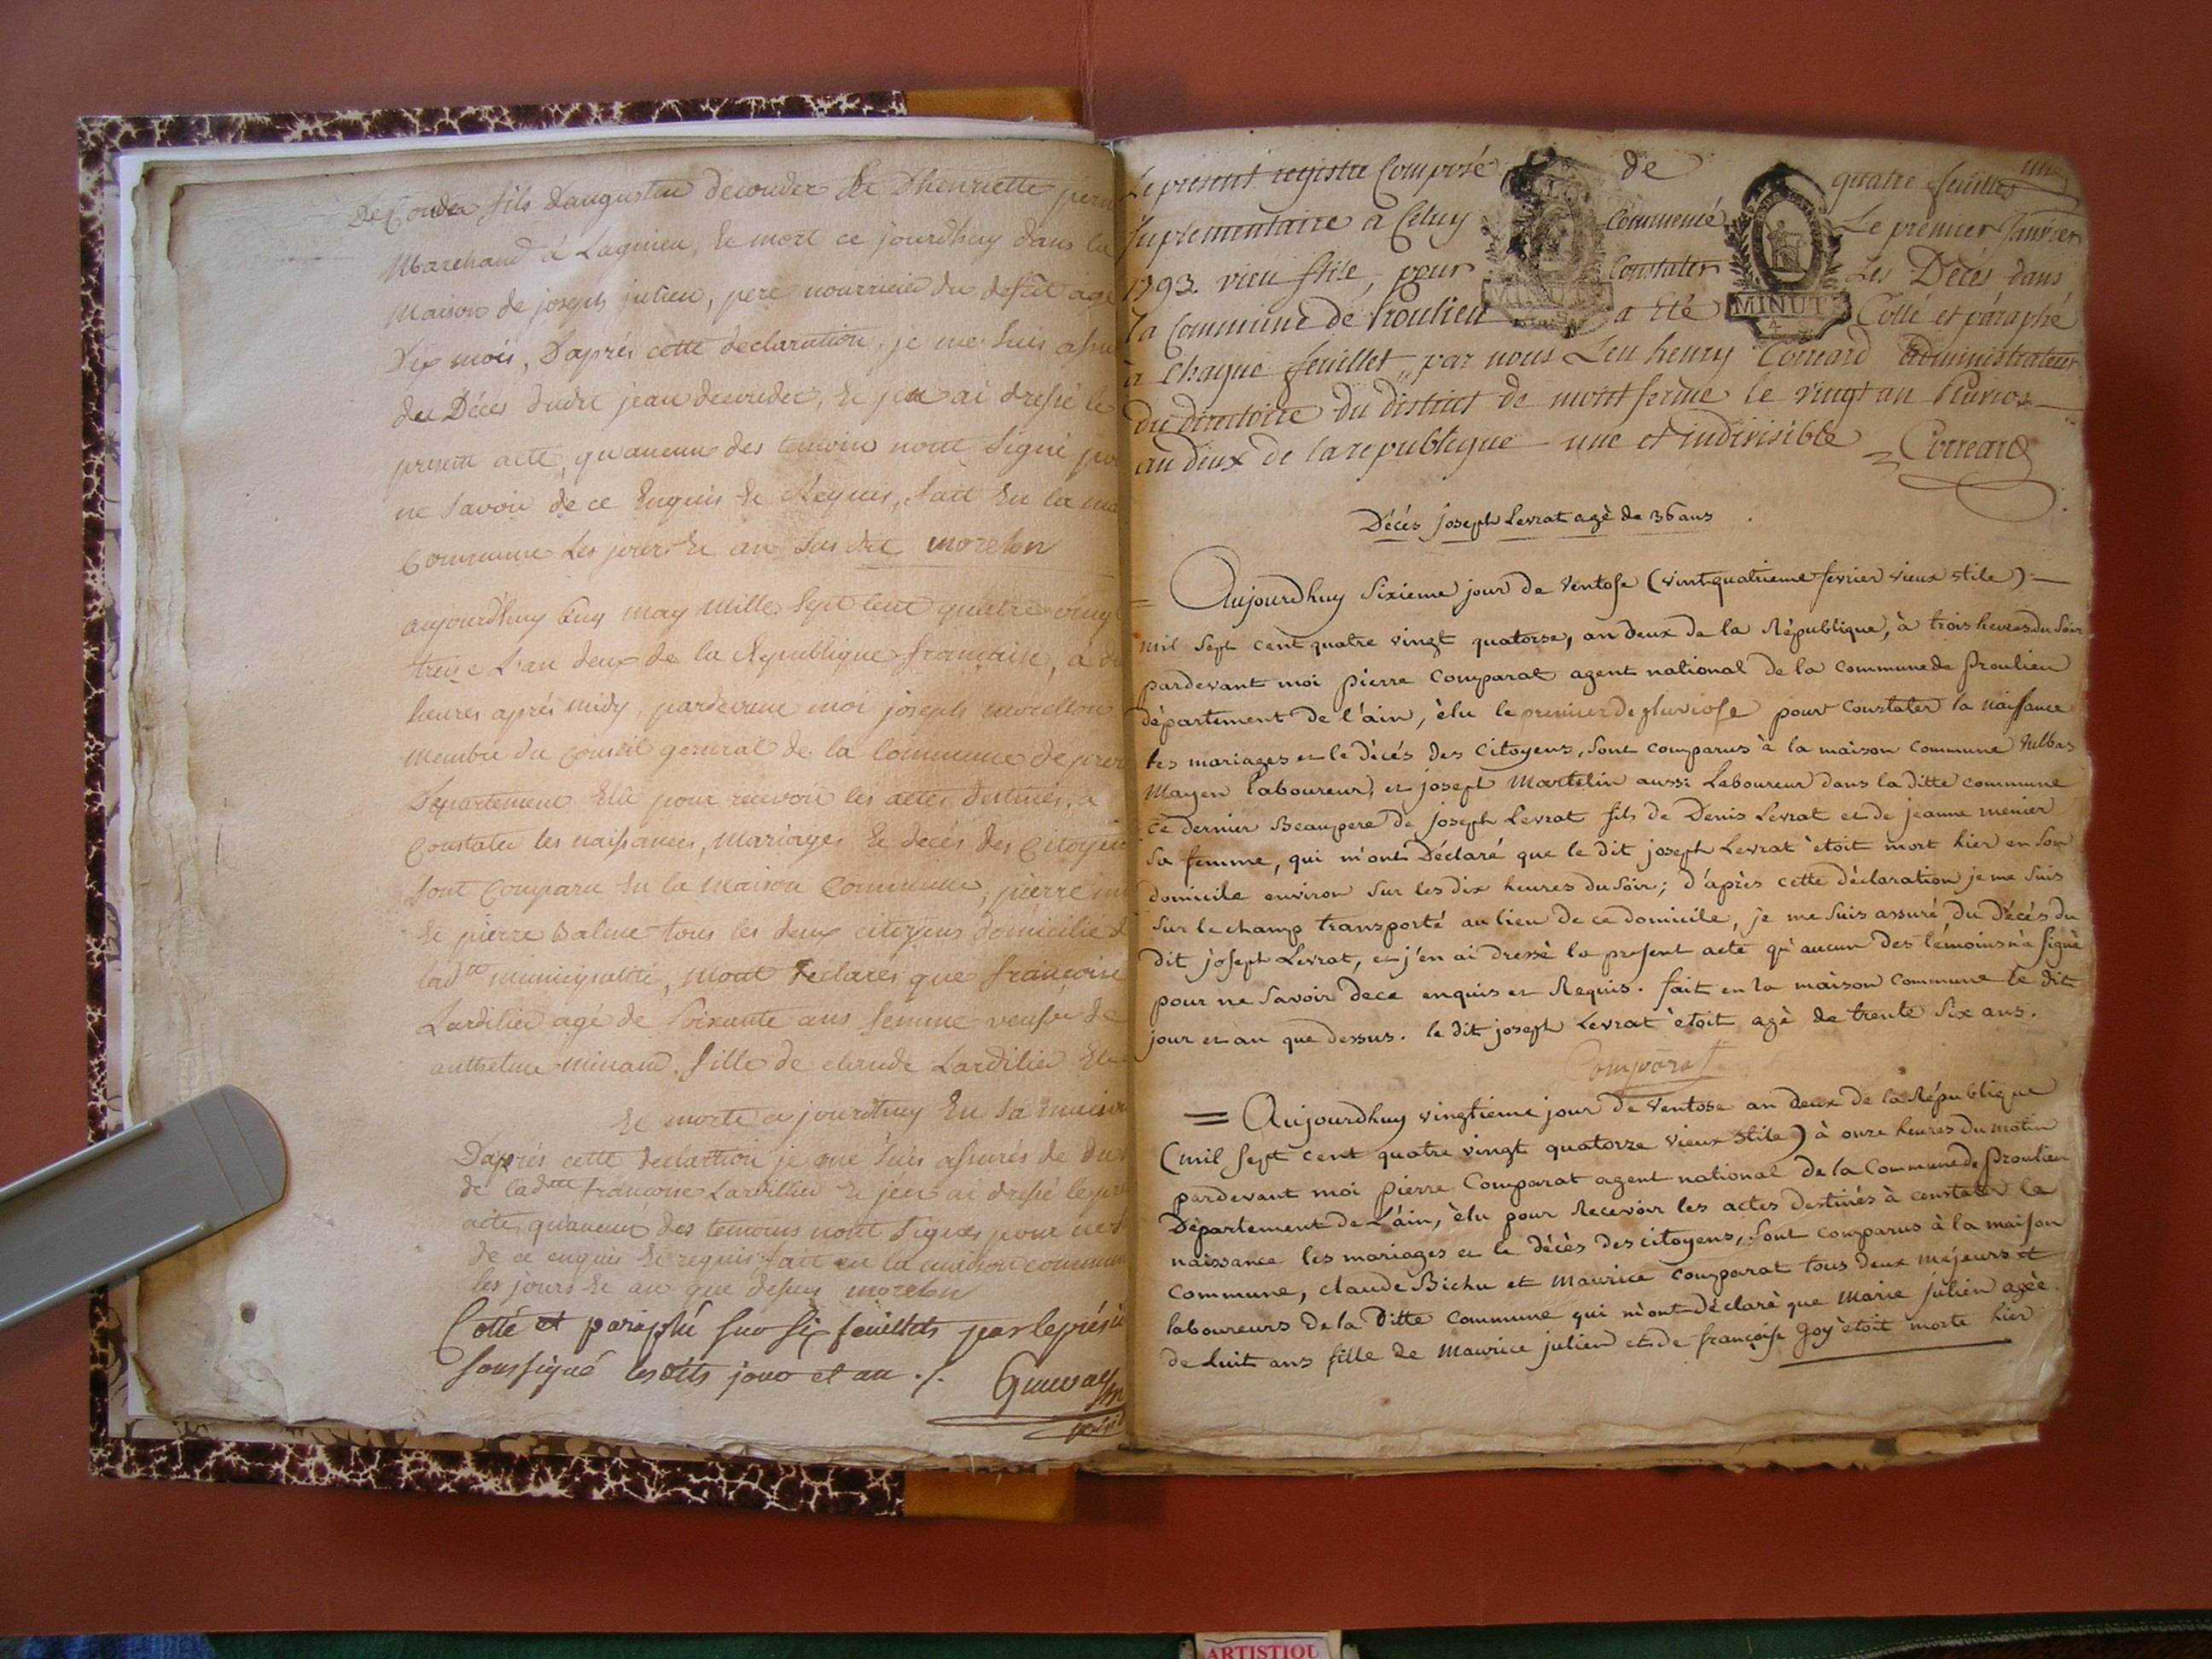 De Couder fils daugustin decouder Et Dhenriette
Marchand à Lagnieu, Et mort ce jourdhuy dans la
Maison de joseph julien, pere nourricier du defunt agé
Dix mois, D'aprés cette declaration, je me suis
du Décés dudit jean decouder, Et jen ai dressé le
present acte, qu'aucun des temoins nont signé
ne savoir de ce Enquis Et Requis, fait En la
Commune Les jours Et an sus dit morelon
aujourdhuy Cinq may Mille Sept Cent quatre vingt
treize L'an deux de la Republique francaise, à
heures aprés midy, pardevant moi joseph morellon
Membre du Conseil general de la Commune de
Departement Elu pour recevoir les actes destinés, a
Constater les naissances, Mariages Et decés des Citoyens
Sont Comparu En la Maison Commune, pierre
Et pierre Balme tous les deux citoyens domicilié
lad.te municipalité, Mont declarés que francoise
Lardilier agé de Soixante ans femme veufve de
anthelme Minand, fille de claude Lardilier Et
Et morte ce jourdhuy En sa maison
D'aprés cette declartion je me suis assurés de
de lad.tte francoise Lardillier Et jen ai dressé le
acte, qu'aucun des temoins nont signés pour ne
de ce enquis Et requis fait en la maison commune
les jours Et an que dessus morelon
Cotté et paraphé sur six feuillets par le président
soussigné les dits jour et an ./.
Le present registre Composé de quatre feuillets une
suplementaire a Celuy Commencé Le premier Janvier
1793. vieu stile, pour Constater Les Décés dans
la Commune de Proulieu a Eté Cotté et páraphé
MINUT
4
à chaque feuillet, par nous Leu henry Correard administrateur
du directoire du district de montferme le vingt un Pluvios
an deux de la republique une et indivisible Correard
Décés joseph Levrat agè de 36 ans
= Aujourdhuy Sixieme jour de Ventose (vint quatrieme fevrier vieux stile)
mil Sept cent quatre vingt quatorse, an deux de la République, à trois heures du Soir
pardevant moi pierre Comparat agent national de la commune de Proulieu
département de l'ain, èlu le premier de pluviose pour Constater la naissance
les mariages et le décés des Citoyens, Sont comparus à la maison commune
Mayen laboureur, et joseph Martelin aussi Laboureur dans la ditte commune
ce dernier Beaupere de joseph Levrat fils de Denis Levrat et de jeanne menier
Sa femme, qui m'ont Déclaré que le dit joseph Levrat ètoit mort hier en Son
domicile environ Sur les dix heures du Soir; d'après cette déclaration je me Suis
Sur le champ transporté au lieu de ce domicile, je me Suis assuré du Décés du
dit joseph Levrat, et j'en ai dressè le present acte qu'aucun des témoins n'a Signè
pour ne Savoir dece enquis et Requis. fait en la maison commune le dit
jour et an que dessus. le dit joseph Levrat ètoit agè de trente Six ans.
Comparat
= Aujourdhuy vingtieme jour de Ventose an deux de la République
(mil Sept cent quatre vingt quatorze vieux Stile) à onze heures du matin
pardevant moi pierre Comparat agent national de la Commune de Proulieu
Département de L'ain, èlu pour Recevoir les actes destinés à constater la
naissance les mariages et le décès des citoyens, Sont comparus à la maison
Commune, claude Bichu et Maurice Comparat tous deux majeurs et
laboureurs de la Ditte Commune qui m'ont dèclarè que Marie julien agée
de huit ans fille de Maurice julien et de françoise Goy ètoit morte hier
ARTISTIQU